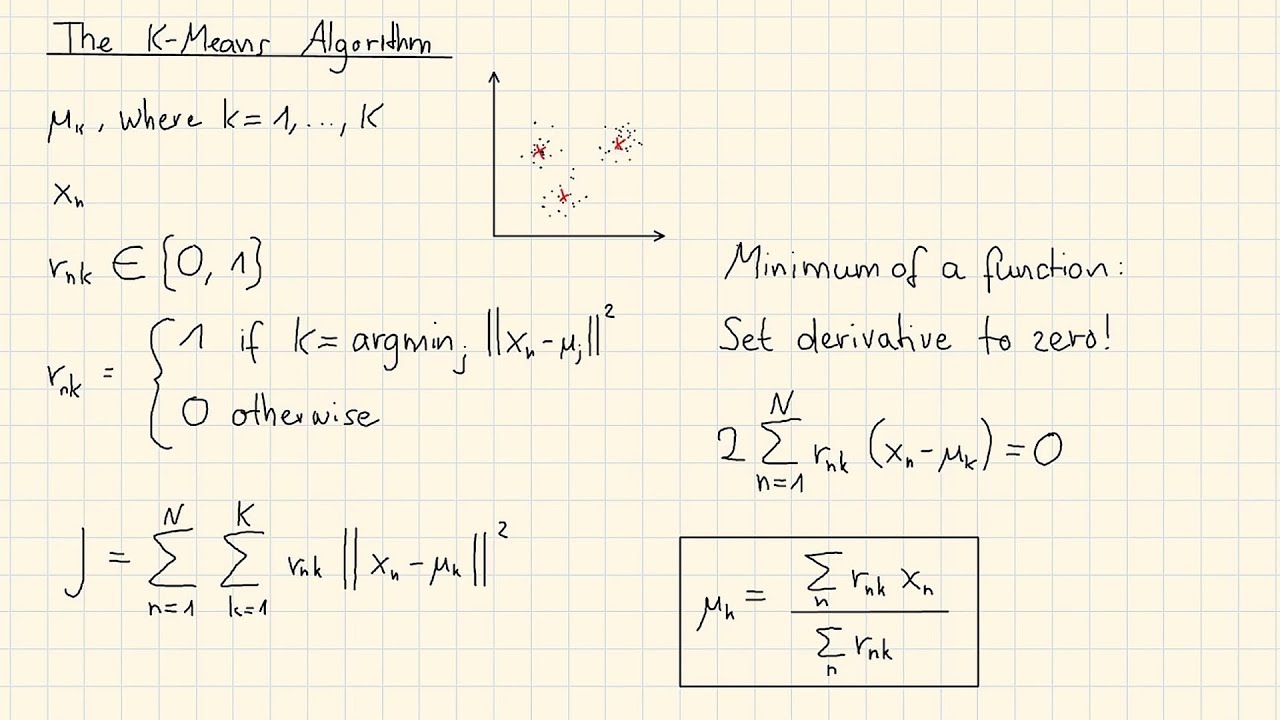 The K-Means Algorithm
μ_k, where k = 1, ..., K
x_n
r_nk ∈ {0, 1}
r_nk = { 1 if k = argmin_j ||x_n - μ_j||^2
0 otherwise
J = ∑_{n=1}^{N} ∑_{k=1}^{K} r_nk ||x_n - μ_k||^2
Minimum of a function:
Set derivative to zero!
2 ∑_{n=1}^{N} r_nk (x_n - μ_k) = 0
μ_k = (∑_n r_nk x_n) / (∑_n r_nk)